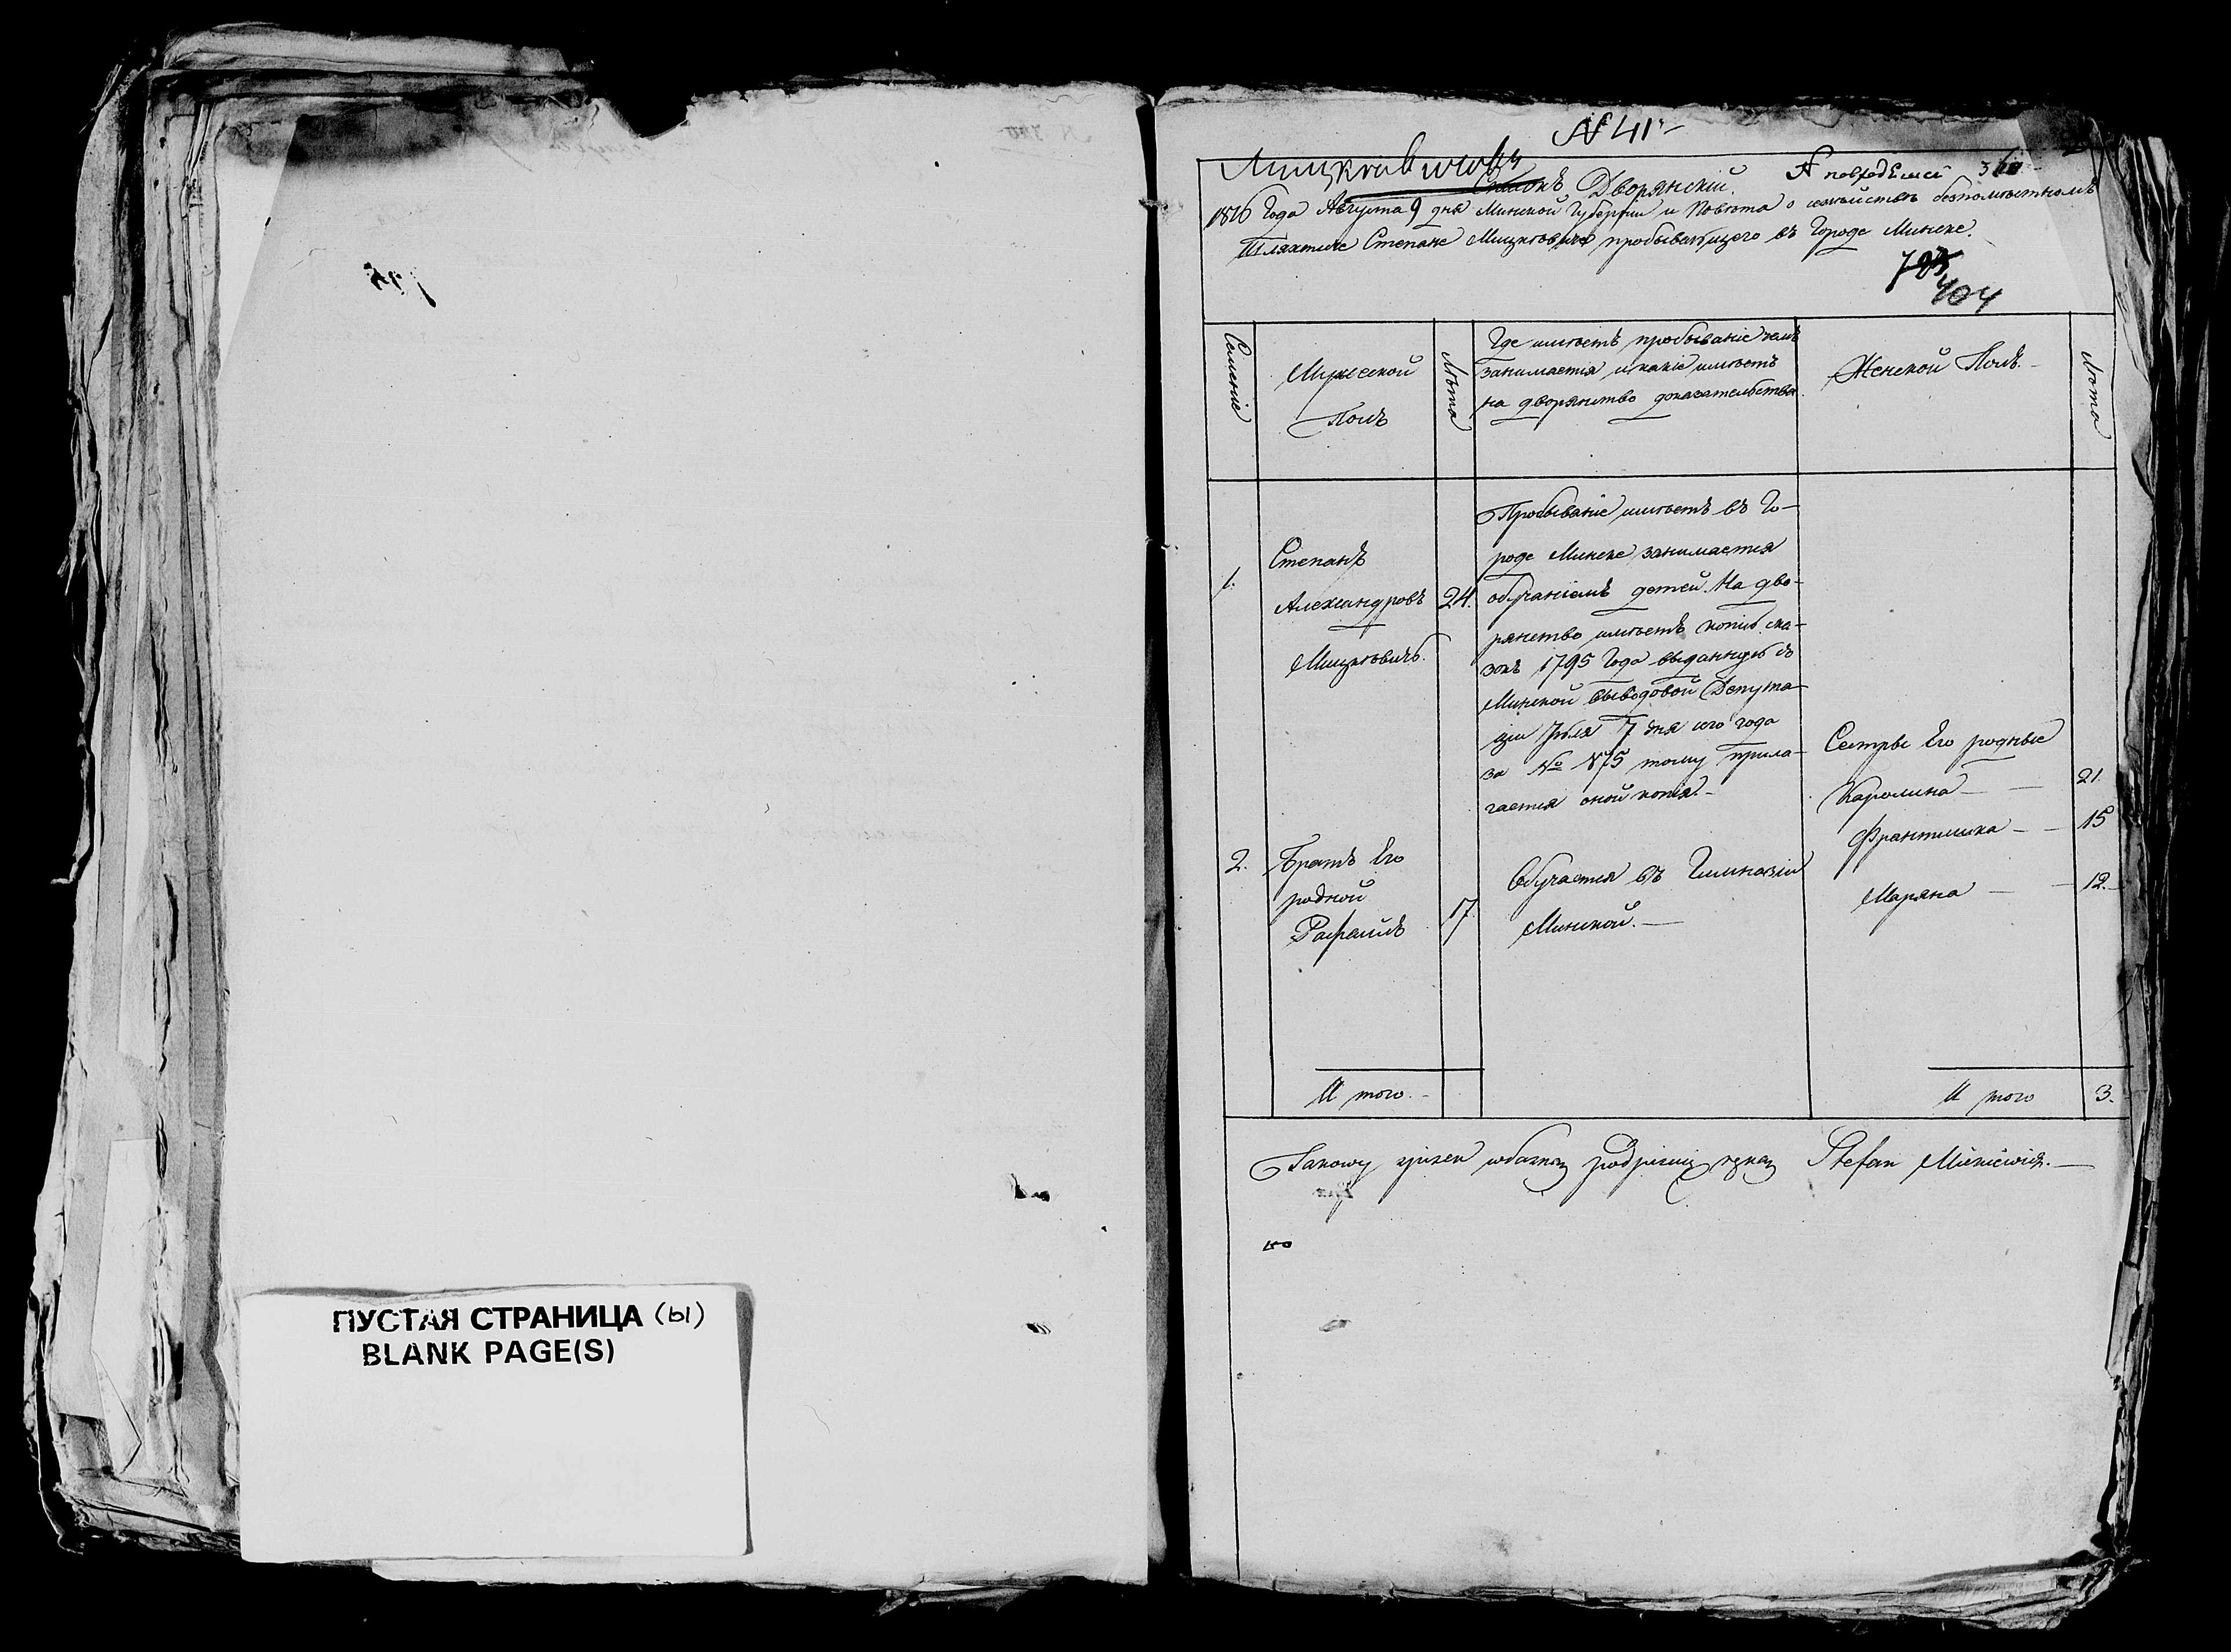 № 41
Мицкевичовъ
Списокъ Дворянскiй. № повходящей
1816 Года Августа 9 дня Минской Губернiи и Повѣта о семействѣ безпомѣстномъ
Шляхтиче Степане Мицкѣвиче пробывающего въ Городе Минске.
404
Семенiе
Мужеской
Полъ
Лѣта
Где имѣетъ пробыванiе чемъ
занимается и какiе имѣетъ
на дворянство доказательства.
Женской Полъ.
Лѣта
1.
Степанъ
Александровъ
Мицкѣвичъ.
24.
Пробыванiе имѣетъ въ Го-
роде Минске занимается
обучанiемъ детей. На дво-
рянство имѣетъ копiю ска-
зокъ 1795 Года выданную съ
Минской выводовой Депута-
цiи 7 дня сего года
за № 875 тому прила-
гается оной копiя.
Сестры Его родные
Каролина 21.
Францишка 15
Маряна 12.
2. Братъ Его
родной
Рафаилъ
17
Обучается въ Гимназiи
Минской.
И того.
И того 3.
Takowy spisek własną podpisuię ręką Stefan Mickiewicz.
ПУСТАЯ СТРАНИЦА (ы)
BLANK PAGE(S)